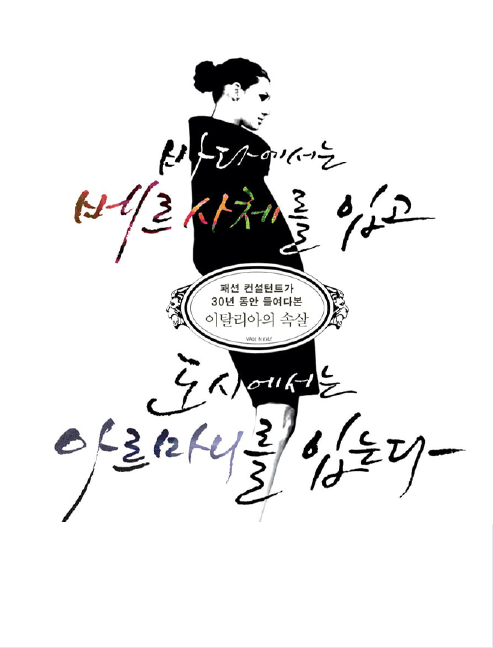 바다에서는
베르사체를 입고
패션 컨설턴트가
30년 동안 들여다본
이탈리아의 속살
도시에서는
아르마니를 입는다